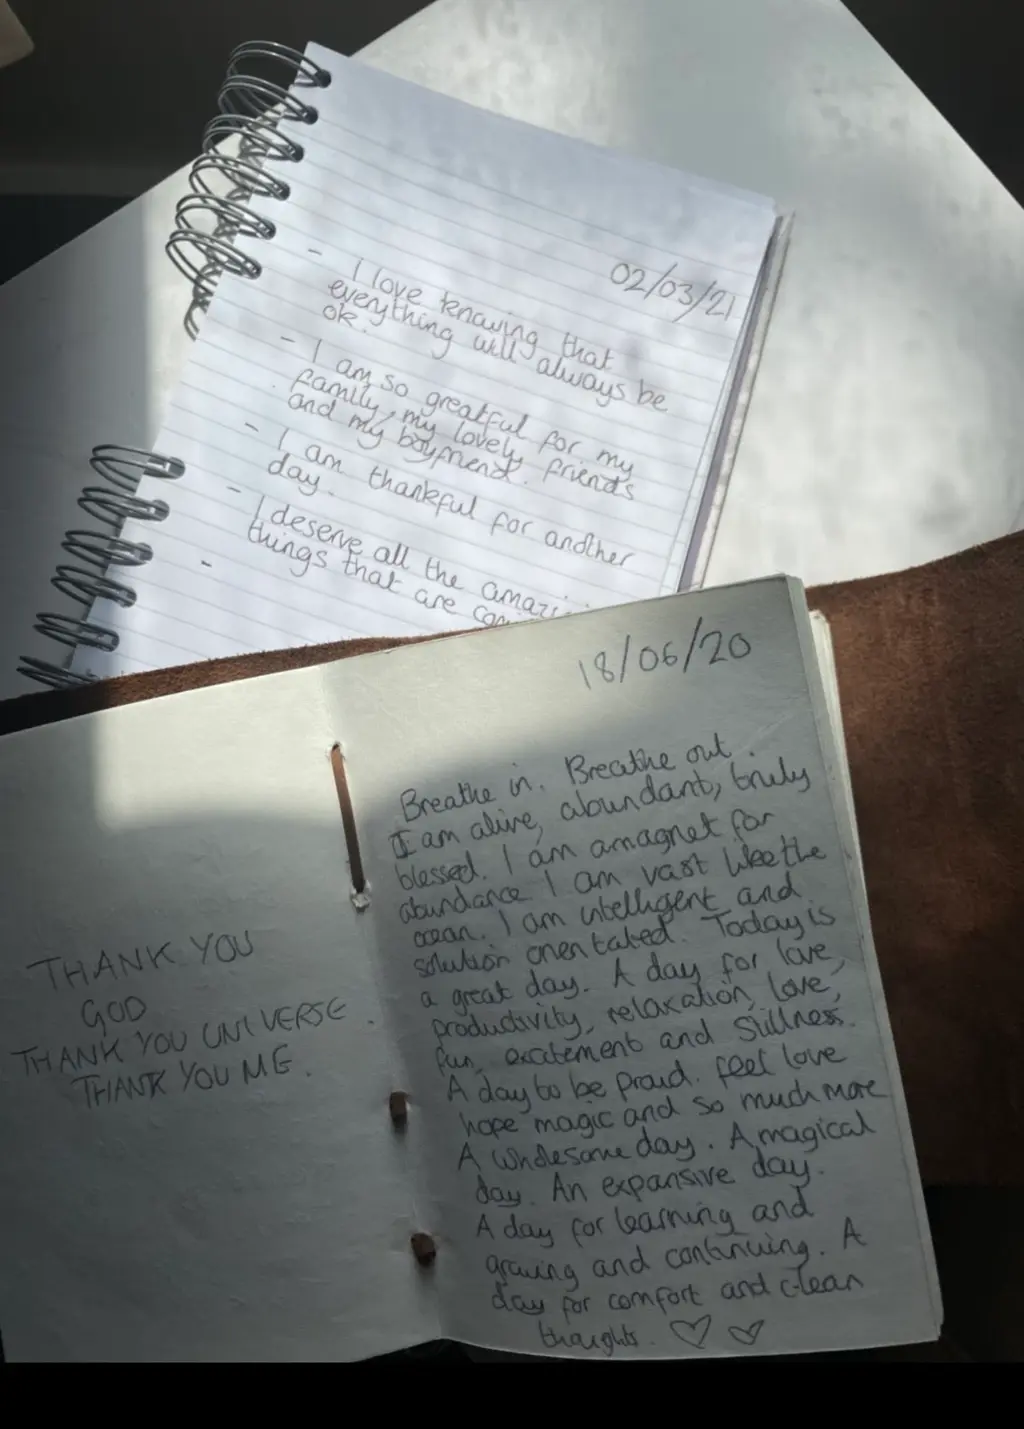 02/03/21
- I love knowing that
everything will always be
ok.
- I am so greatful for my
family, my lovely friends
and my boyfriend.
- I am thankful for another
day.
- I deserve all the
things that are
-
18/06/20
Breathe in. Breathe out.
I am alive, abundant, truly
blessed. I am amagnet for
abundance I am vast like the
ocean. I am intelligent and
solution orientated. Today is
a great day. A day for love,
productivity, relaxation, love,
fun, excitement and stillness.
A day to be proud. feel love
hope magic and so much more
A wholesome day. A magical
day. An expansive day.
A day for learning and
growing and continuing. A
day for comfort and clean
thoughts. ♡ ♡
THANK YOU
GOD
THANK YOU UNIVERSE.
THANK YOU ME.